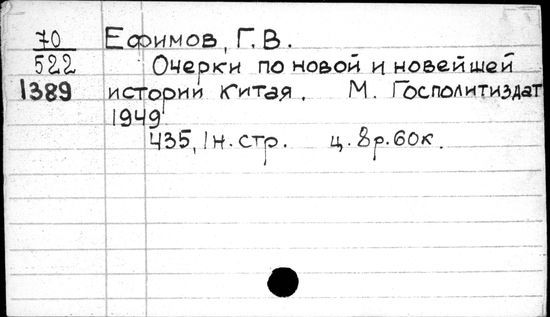 70 Ефимов, Г.В.
522 Очерки по новой и новейшей
1389 истории Китая. М. Госполитиздат
1949
435, 1н.стр. ц. 8р.60к.